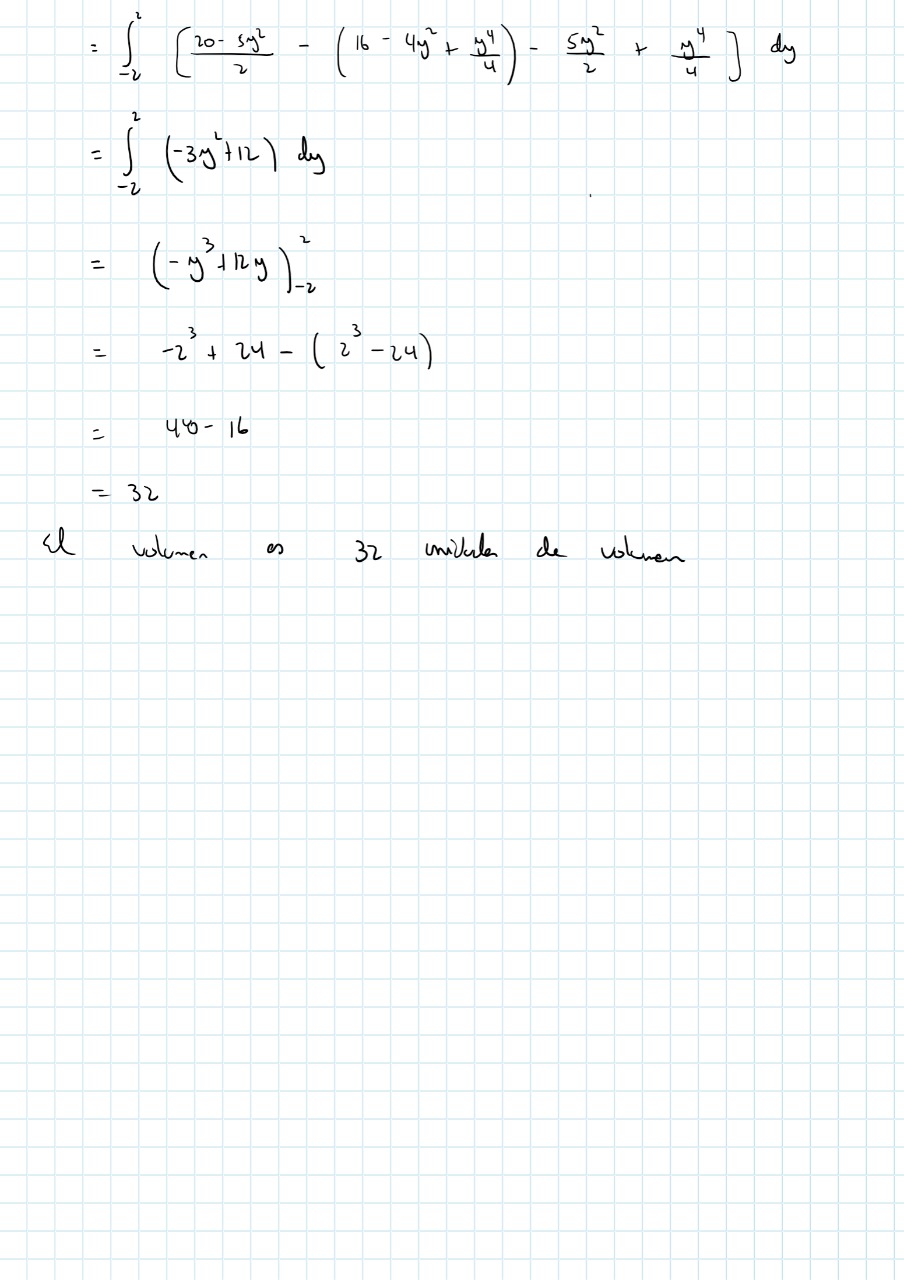 = ∫_{-2}^{2} [ (20 - 5y²)/2 - (16 - 4y² + y⁴/4) - 5y²/2 + y⁴/4 ] dy
= ∫_{-2}^{2} (-3y² + 12) dy
= (-y³ + 12y)_{-2}^{2}
= -2³ + 24 - (2³ - 24)
= 48 - 16
= 32
El volumen es 32 unidades de volumen